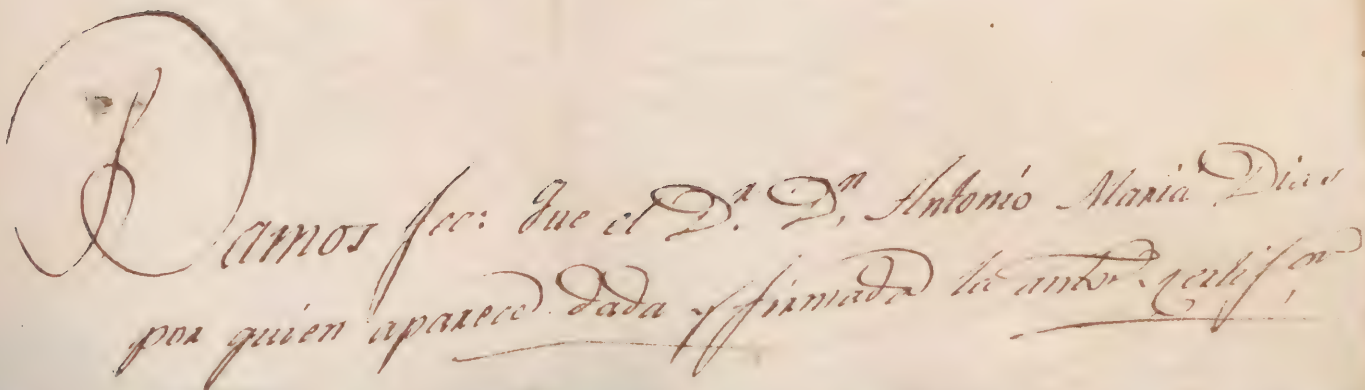 Damos fee: Que el D.r D.n Antonio Maria Dias
por quien aparece dada y firmada la antor. zertif.on